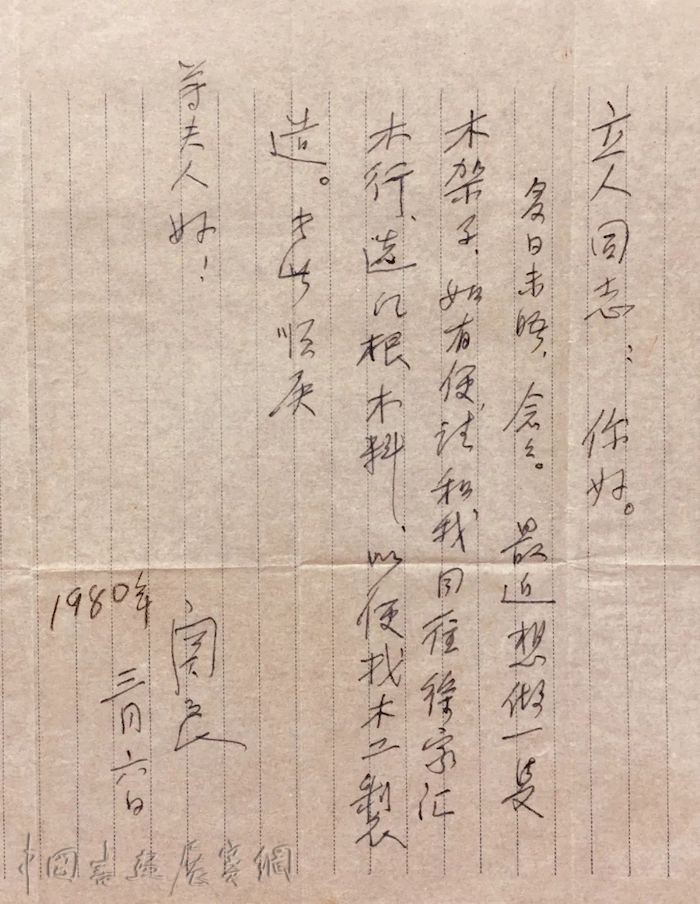 立人同志：你好。
多日未晤，念々。最近想做一隻
木架子，如有便请和我同往徐家汇
木行，选几根木料，以便找木工製
造。专此顺候
尊夫人好！
关良
1980年
三月六日
中国书画展赛网